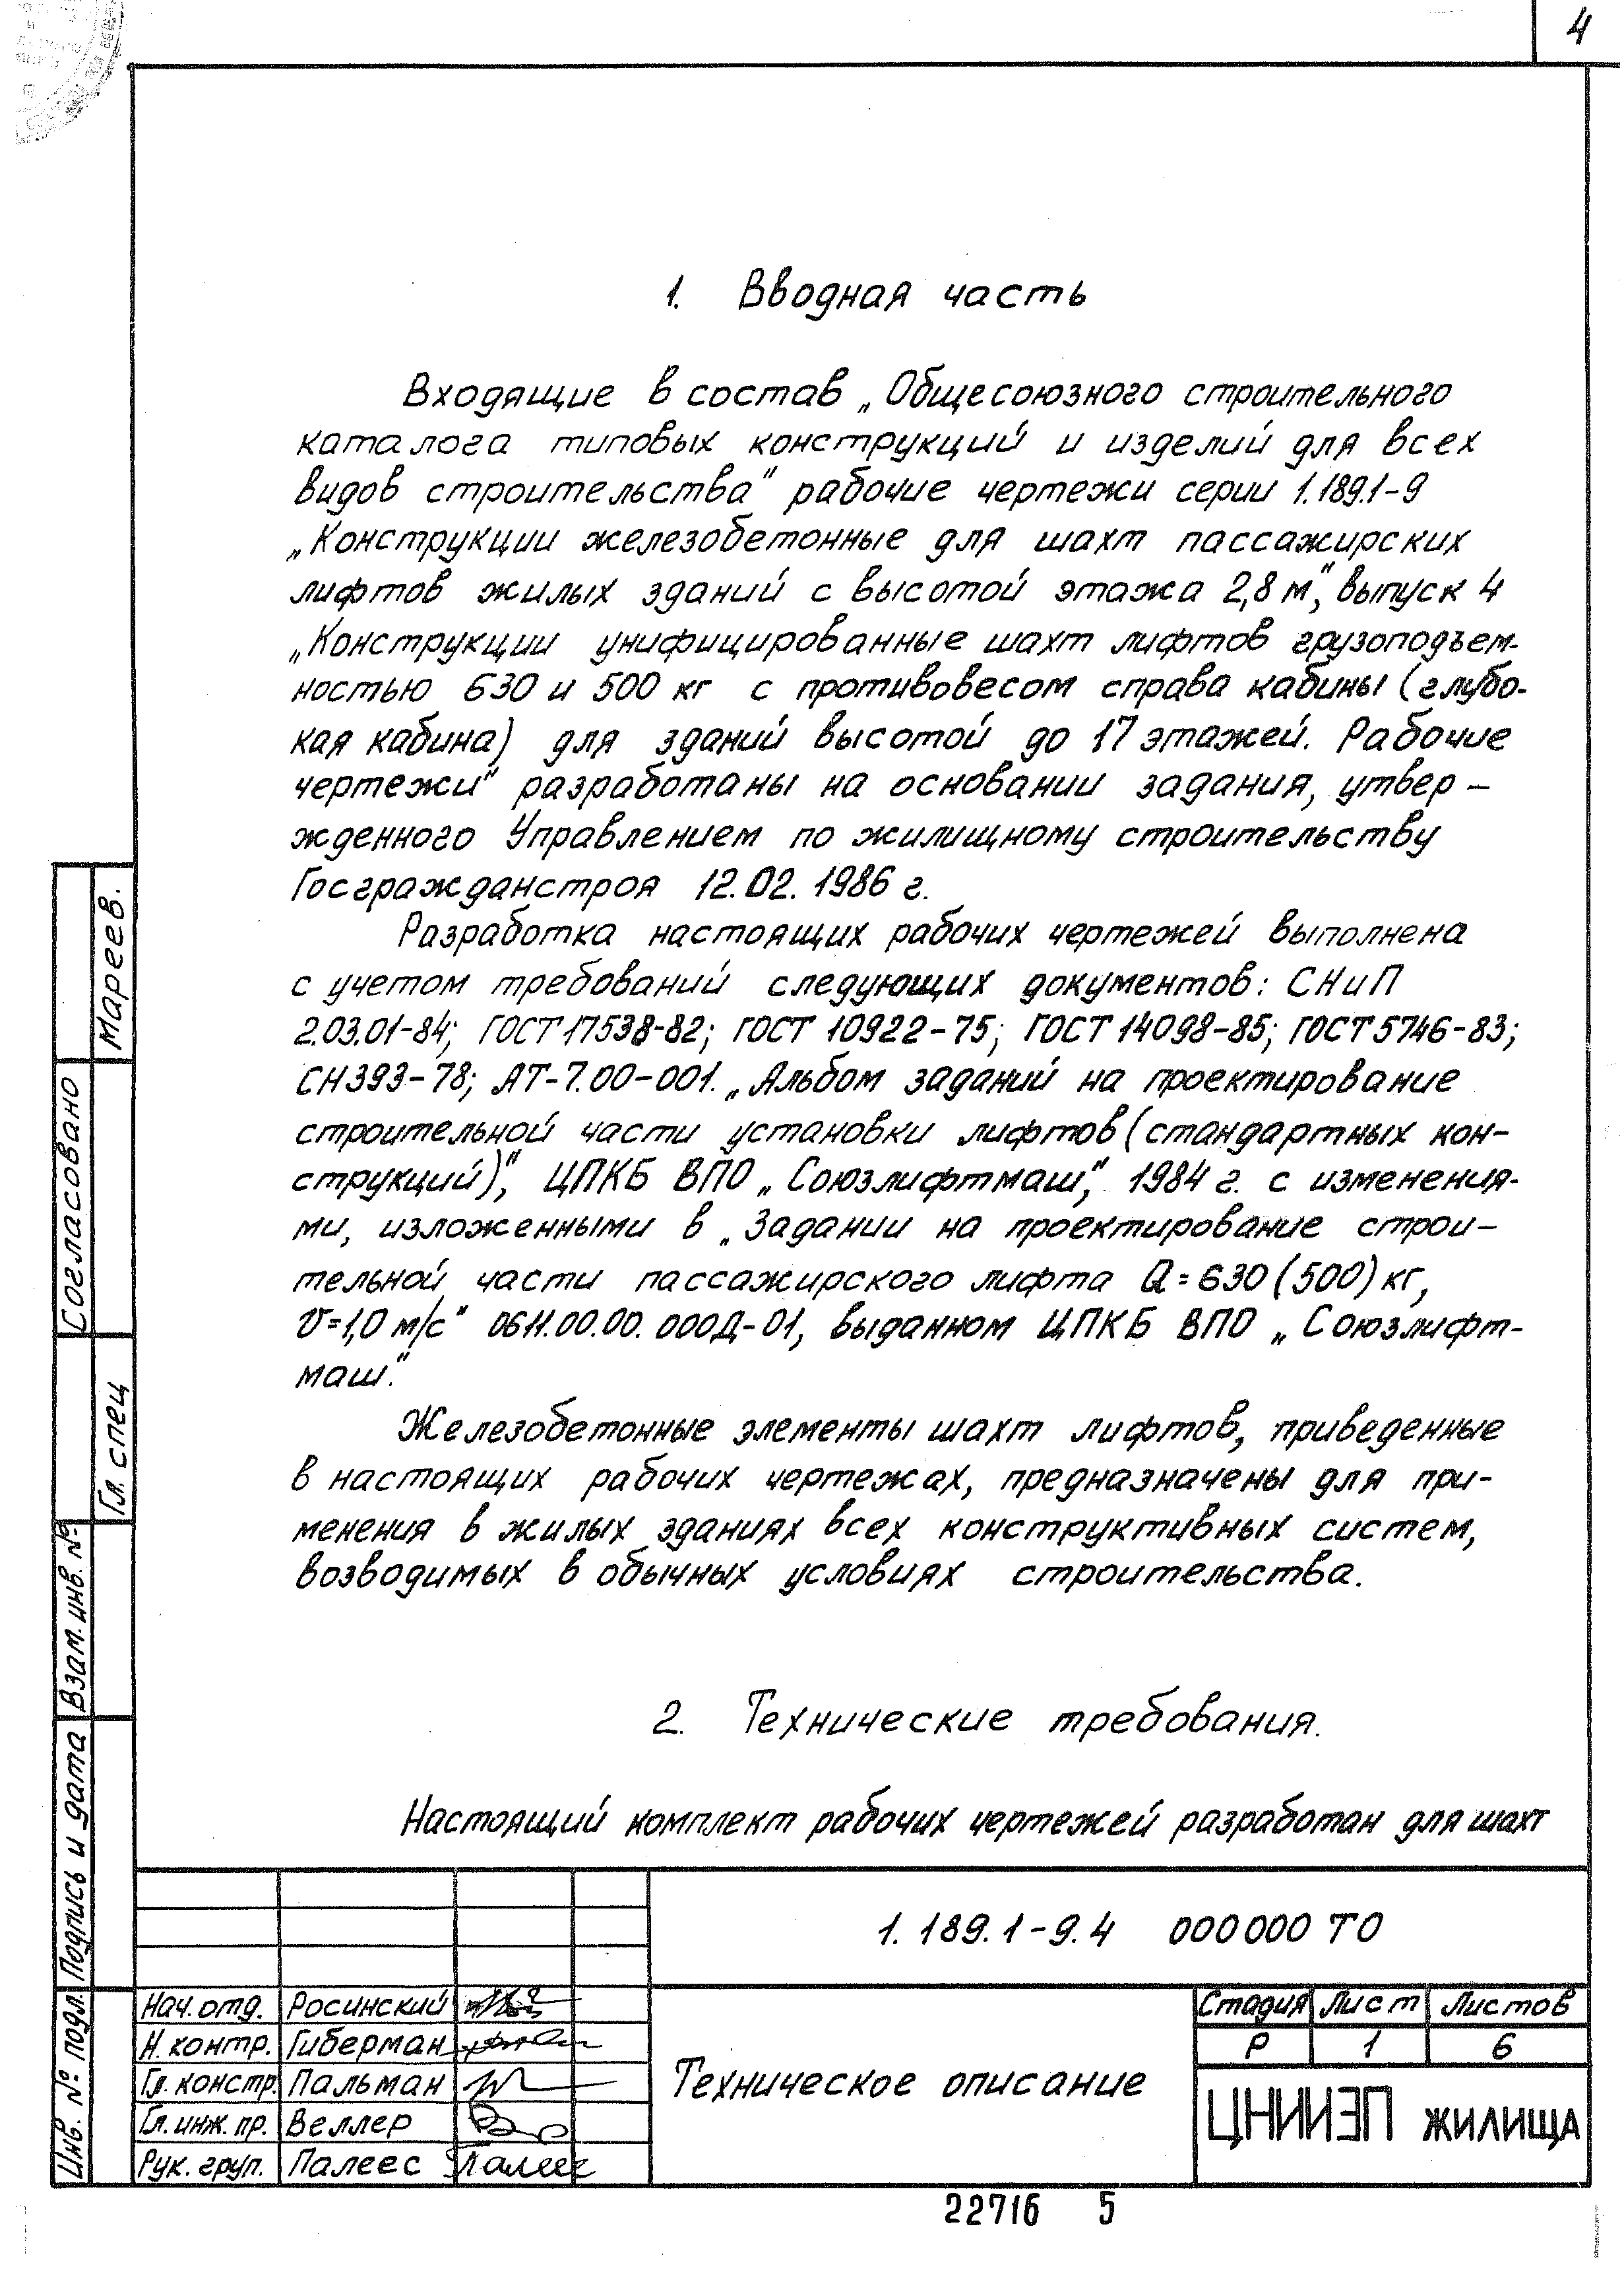 4
1. Вводная часть
Входящие в состав „Общесоюзного строительного
каталога типовых конструкций и изделий для всех
видов строительства" рабочие чертежи серии 1.189.1-9
„Конструкции железобетонные для шахт пассажирских
лифтов жилых зданий с высотой этажа 2,8 м", выпуск 4
„Конструкции унифицированные шахт лифтов грузоподъем-
ностью 630 и 500 кг с противовесом справа кабины (глубо-
кая кабина) для зданий высотой до 17 этажей. Рабочие
чертежи" разработаны на основании задания, утвер-
жденного Управлением по жилищному строительству
Госгражданстроя 12.02.1986 г.
Разработка настоящих рабочих чертежей выполнена
с учетом требований следующих документов: СНиП
2.03.01-84; ГОСТ 17538-82; ГОСТ 10922-75; ГОСТ 14098-85; ГОСТ 5746-83;
СН393-78; АТ-7.00-001. „Альбом заданий на проектирование
строительной части установки лифтов (стандартных кон-
струкций)", ЦПКБ ВПО „Союзлифтмаш", 1984 г. с изменения-
ми, изложенными в „Задании на проектирование строи-
тельной части пассажирского лифта Q=630(500) кг,
v=1,0 м/с" 0611.00.00.000Д-01, выданном ЦПКБ ВПО „Союзлифт-
маш".
Железобетонные элементы шахт лифтов, приведенные
в настоящих рабочих чертежах, предназначены для при-
менения в жилых зданиях всех конструктивных систем,
возводимых в обычных условиях строительства.
2. Технические требования.
Настоящий комплект рабочих чертежей разработан для шахт
Согласовано
Мареев.
Гл. спец
Взам. инв. №
Подпись и дата
Инв. № подл.
1.189.1-9.4 000000 ТО
Нач. отд. Росинский
Н. контр. Гиберман
Гл. констр. Пальман
Гл. инж. пр. Веллер
Рук. груп. Палеес Палеес
Техническое описание
Стадия Лист Листов
Р 1 6
ЦНИИЭП жилища
22716 5